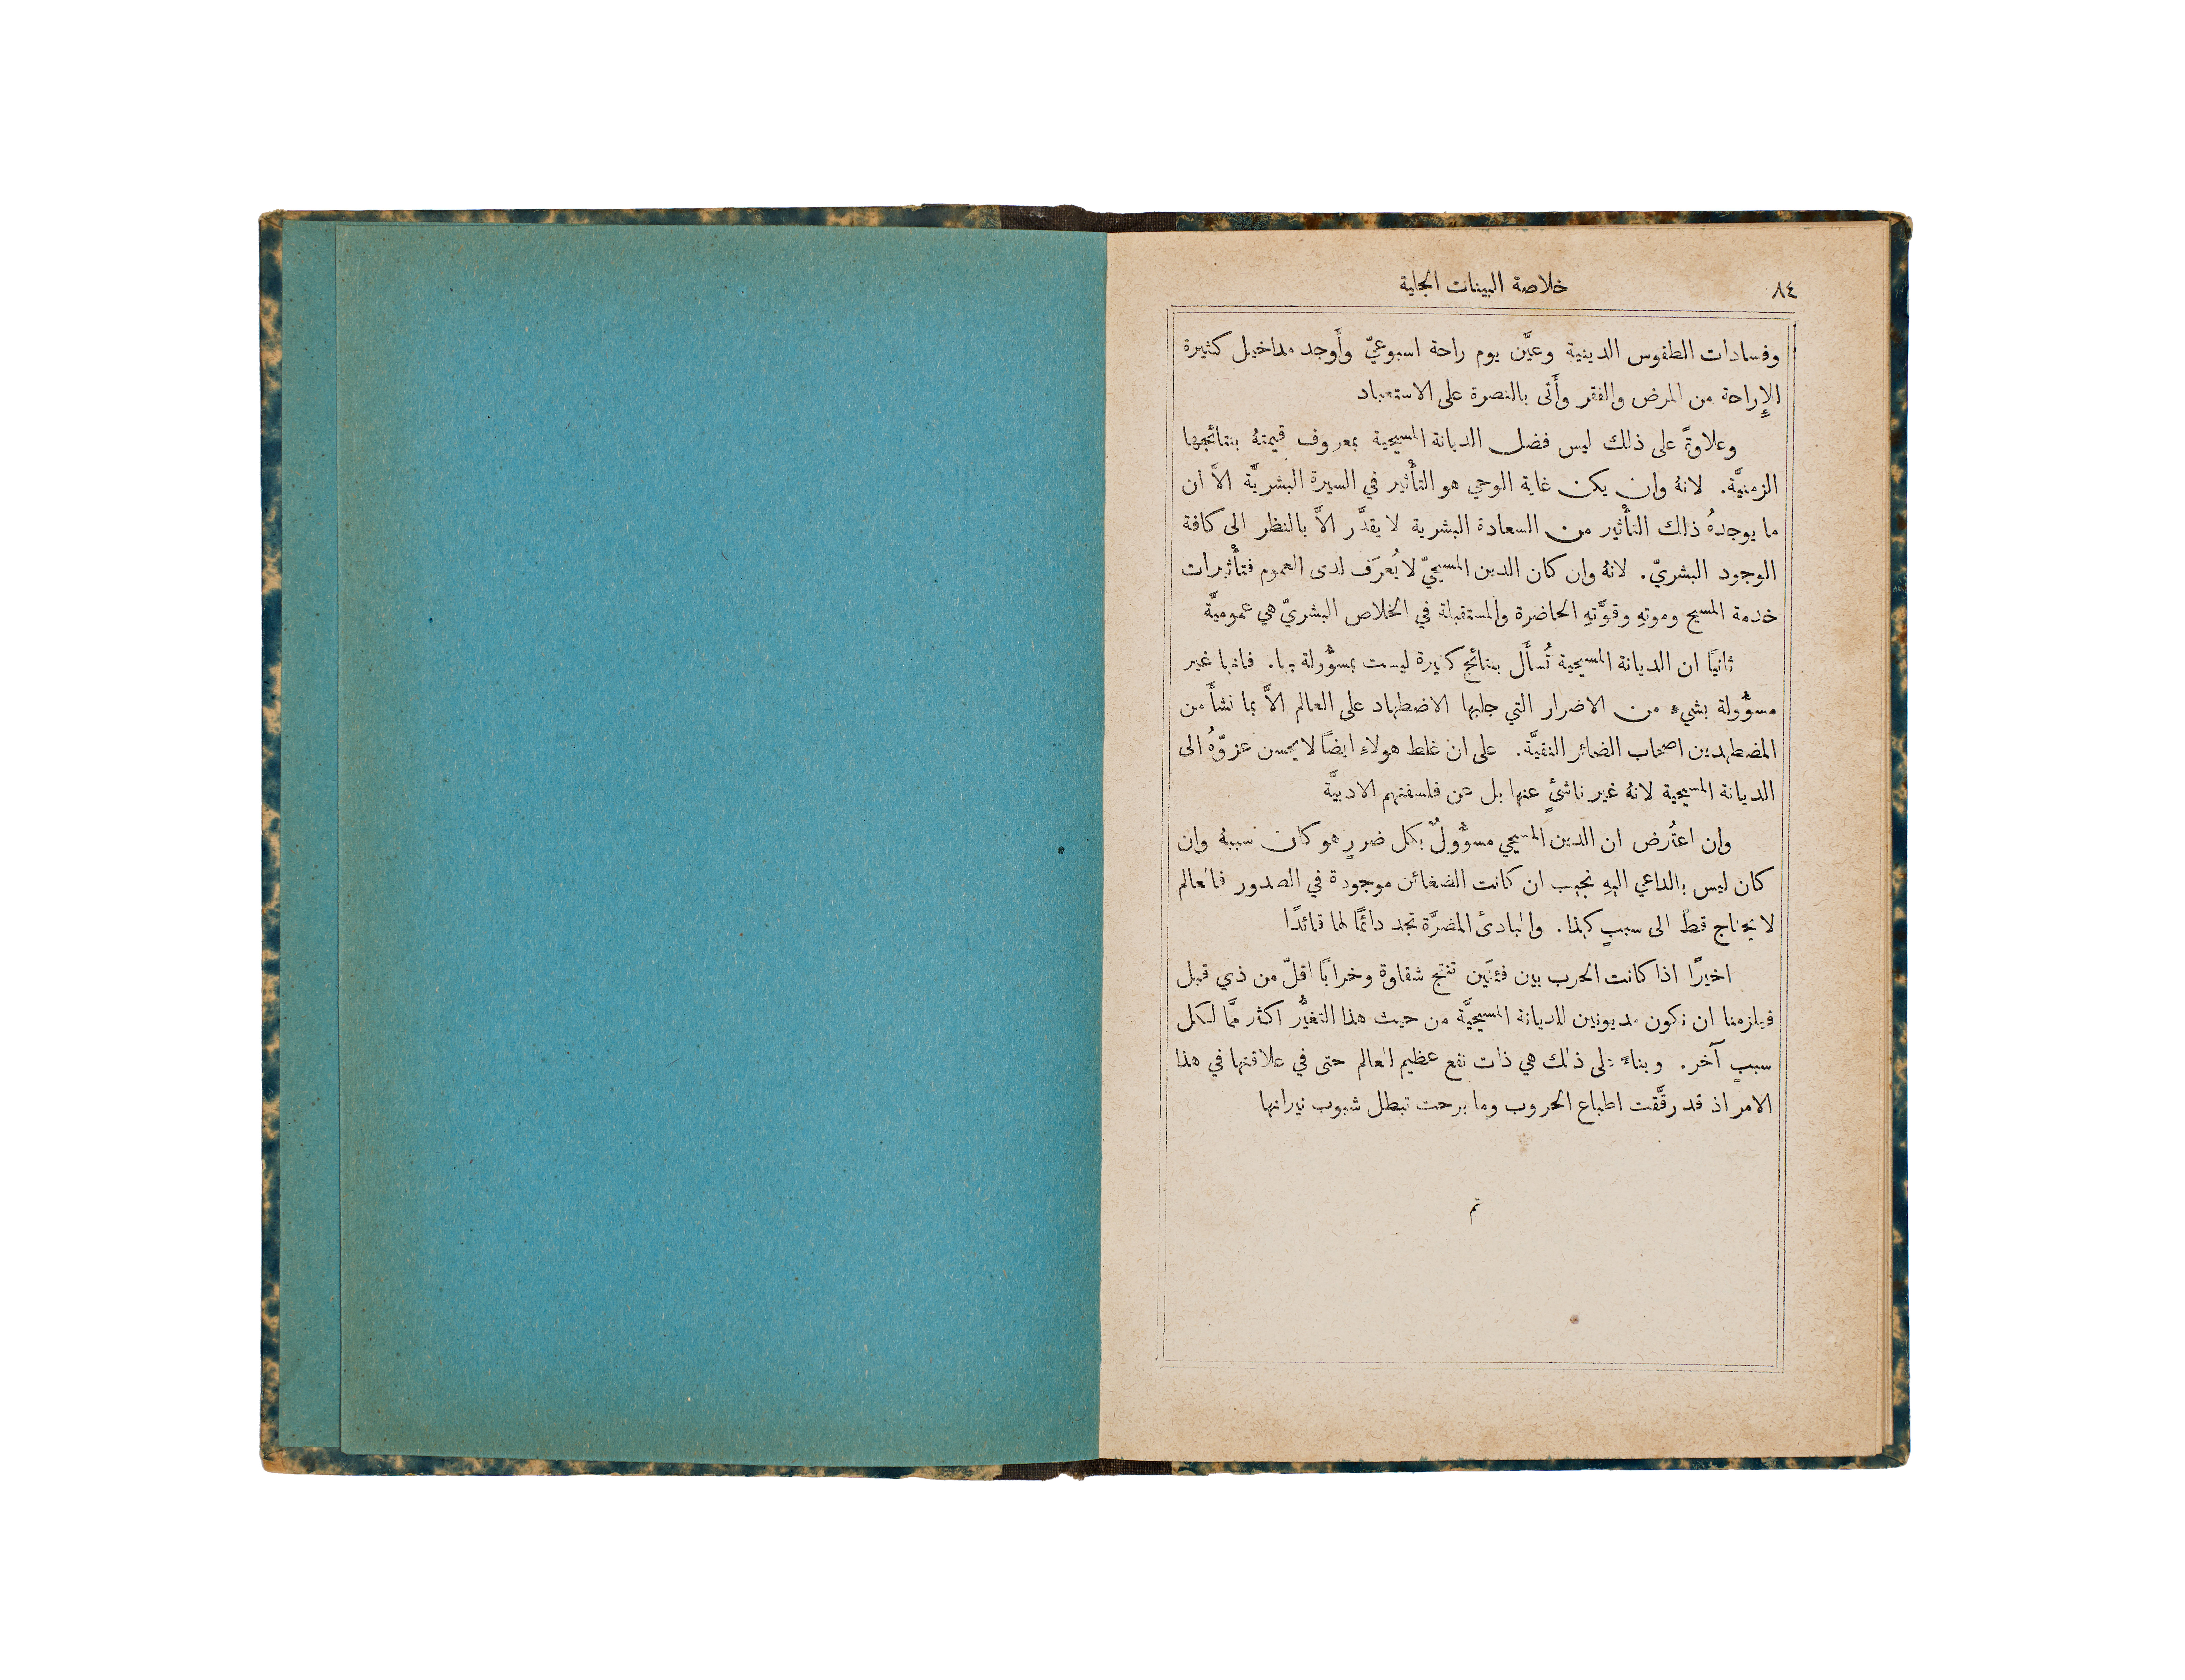 ٨٤
خلاصة البينات الجلية
وفسادات الطقوس الدينية وعيَّن يوم راحة اسبوعيّ وأَوجد مداخيل كثيرة
الإِراحة من المرض والفقر وأَتى بالنصرة على الاستعباد
وعلاوةً على ذلك ليس فضل الديانة المسيحية بمعروف قيمتهُ بنتائجها
الزمنيَّة. لانهُ وان يكن غاية الوحي هو التأْثير في السيرة البشريَّة الاَّ ان
ما يوجدهُ ذلك التأْثير من السعادة البشرية لا يقدَّر الاَّ بالنظر الى كافة
الوجود البشريّ. لانهُ وان كان الدين المسيحيّ لا يُعرَف لدى العموم فتأْثيرات
خدمة المسيح وموتهِ وقوَّتهِ الحاضرة والمستقبلة في الخلاص البشريّ هي عموميَّة
ثانيًا ان الديانة المسيحية تُسأَل بنتائج كثيرة ليست بمسؤُولة بها. فانها غير
مسؤُولة بشيءٍ من الاضرار التي جلبها الاضطهاد على العالم الاَّ بما نشأَ من
المضطهدين اصحاب الضمائر النقيَّة. على ان غلط هولاءِ ايضًا لا يحسن عزوّهُ الى
الديانة المسيحية لانهُ غير ناشئٍ عنها بل عن فلسفتهم الادبيَّة
وان اعتُرض ان الدين المسيحي مسؤُولٌ بكل ضررٍ هو كان سببهُ وان
كان ليس بالداعي اليهِ نجيب ان كانت الضغائن موجودة في الصدور فالعالم
لا يحتاج قطُّ الى سببٍ كهذا. والمبادئ المضرَّة تجد دائمًا لها قائدًا
اخيرًا اذا كانت الحرب بين فئتَين تنتج شقاوة وخرابًا اقلّ من ذي قبل
فيلزمنا ان نكون مديونين للديانة المسيحيَّة من حيث هذا التغيُّر اكثر ممَّا لكل
سببٍ آخر. وبناءً على ذلك هي ذات نفع عظيم للعالم حتى في علاقتها في هذا
الامر اذ قد رقَّقت اطباع الحروب وما برحت تبطل شبوب نيرانها
تم